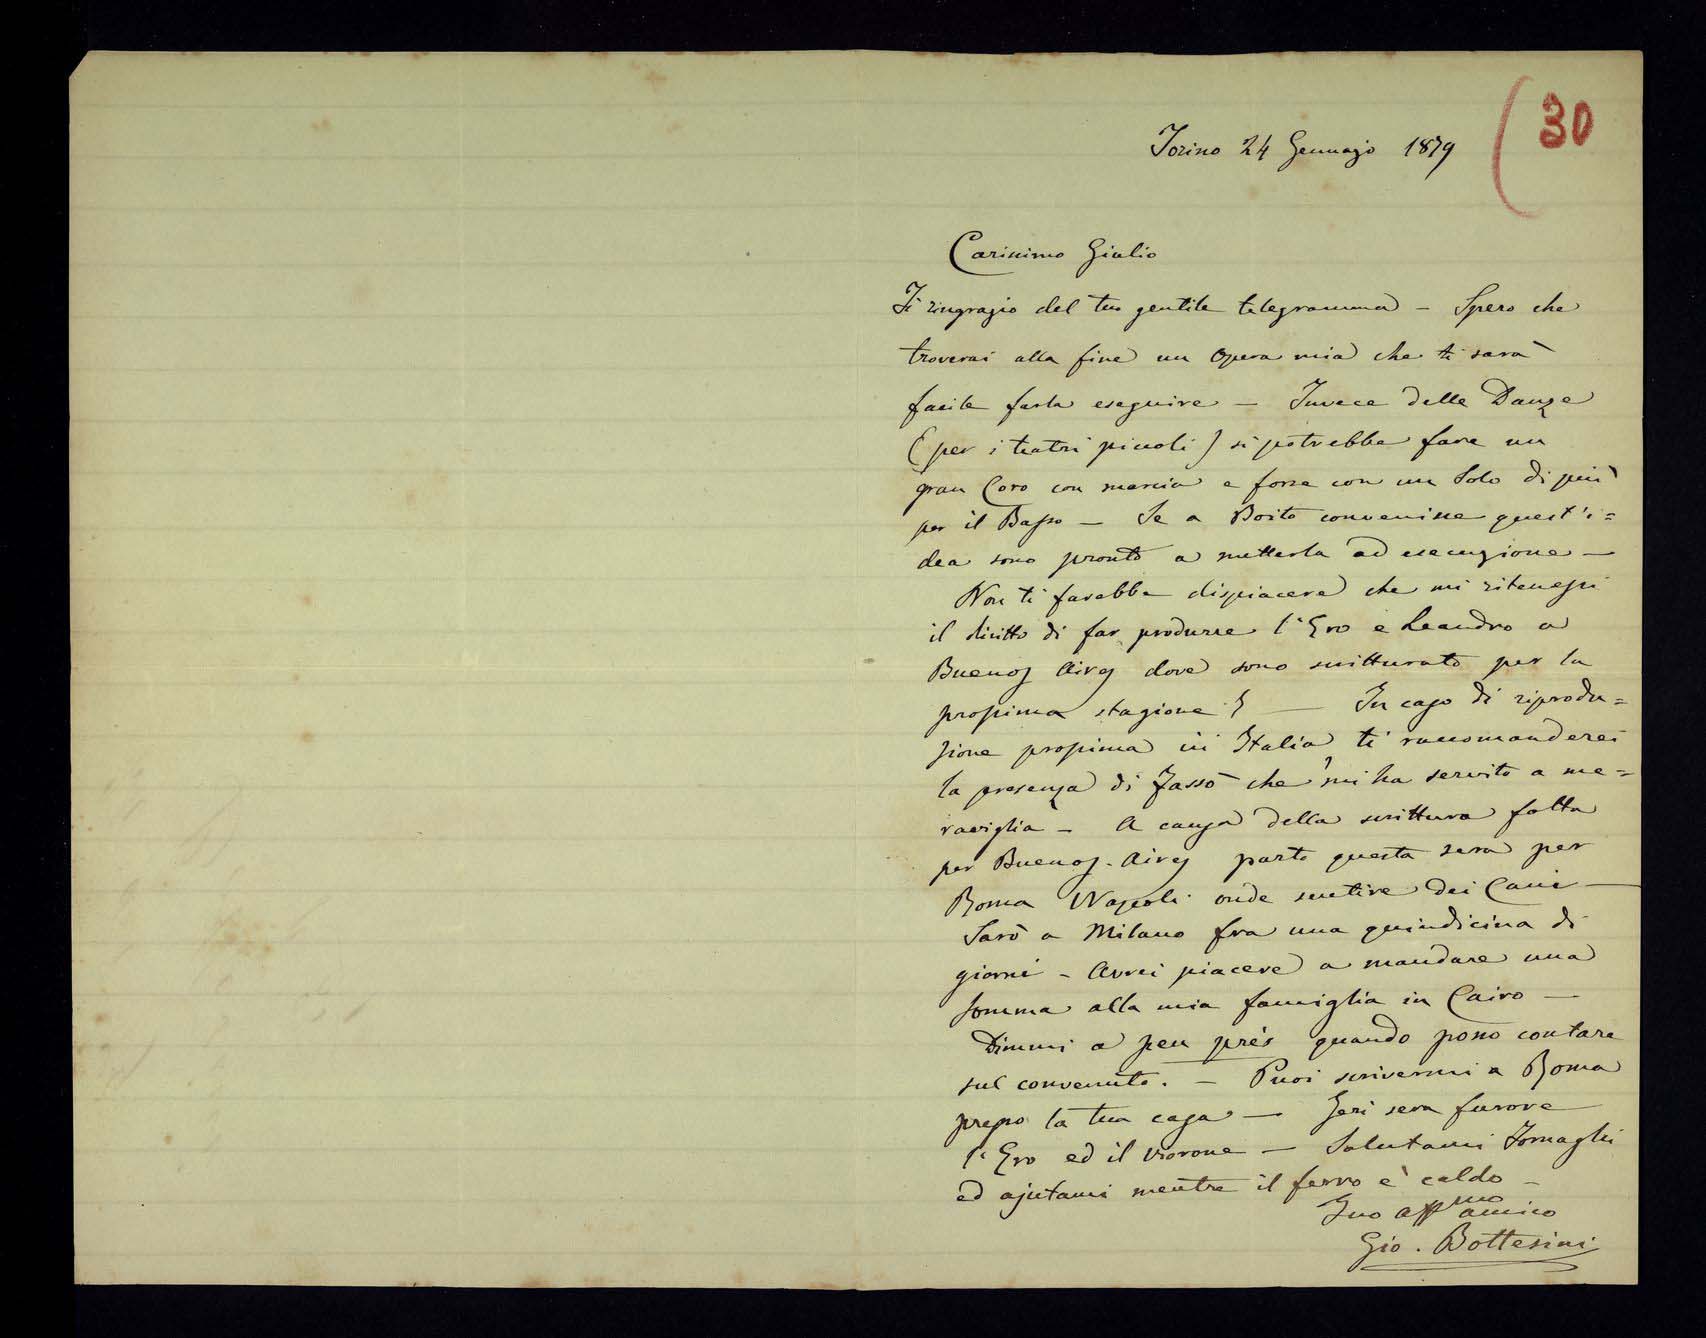 30
Torino 24 Gennajo 1879
Carissimo Giulio
Ti ringrazio del tuo gentile telegramma – Spero che
troverai alla fine un Opera mia che ti sarà
facile farla eseguire – Invece delle Danze
(per i teatri piccoli) si potrebbe fare un
gran Coro con marcia e forse con un Solo di più
per il Basso – Se a Boito convenisse quest'i=
dea sono pronto a metterla ad esecuzione –
Non ti farebbe dispiacere che mi ritenessi
il diritto di far produrre l'Ero e Leandro a
Buenos Aires dove sono scritturato per la
prossima stagione? – In caso di riprodu=
zione prossima in Italia ti raccomanderei
la presenza di Fassò che mi ha servito a me=
raviglia – A causa della scrittura fatta
per Buenos-Aires parto questa sera per
Roma Napoli onde sentire dei Cani –
Sarò a Milano fra una quindicina di
giorni – Avrei piacere a mandare una
somma alla mia famiglia in Cairo –
Dimmi a peu près quando posso contare
sul convenuto. – Puoi scrivermi a Roma
presso la tua casa – Jeri sera furore
l'Ero ed il – Salutami Tornaghi
ed ajutami mentre il ferro è caldo –
Tuo affmo amico
Gio. Bottesini